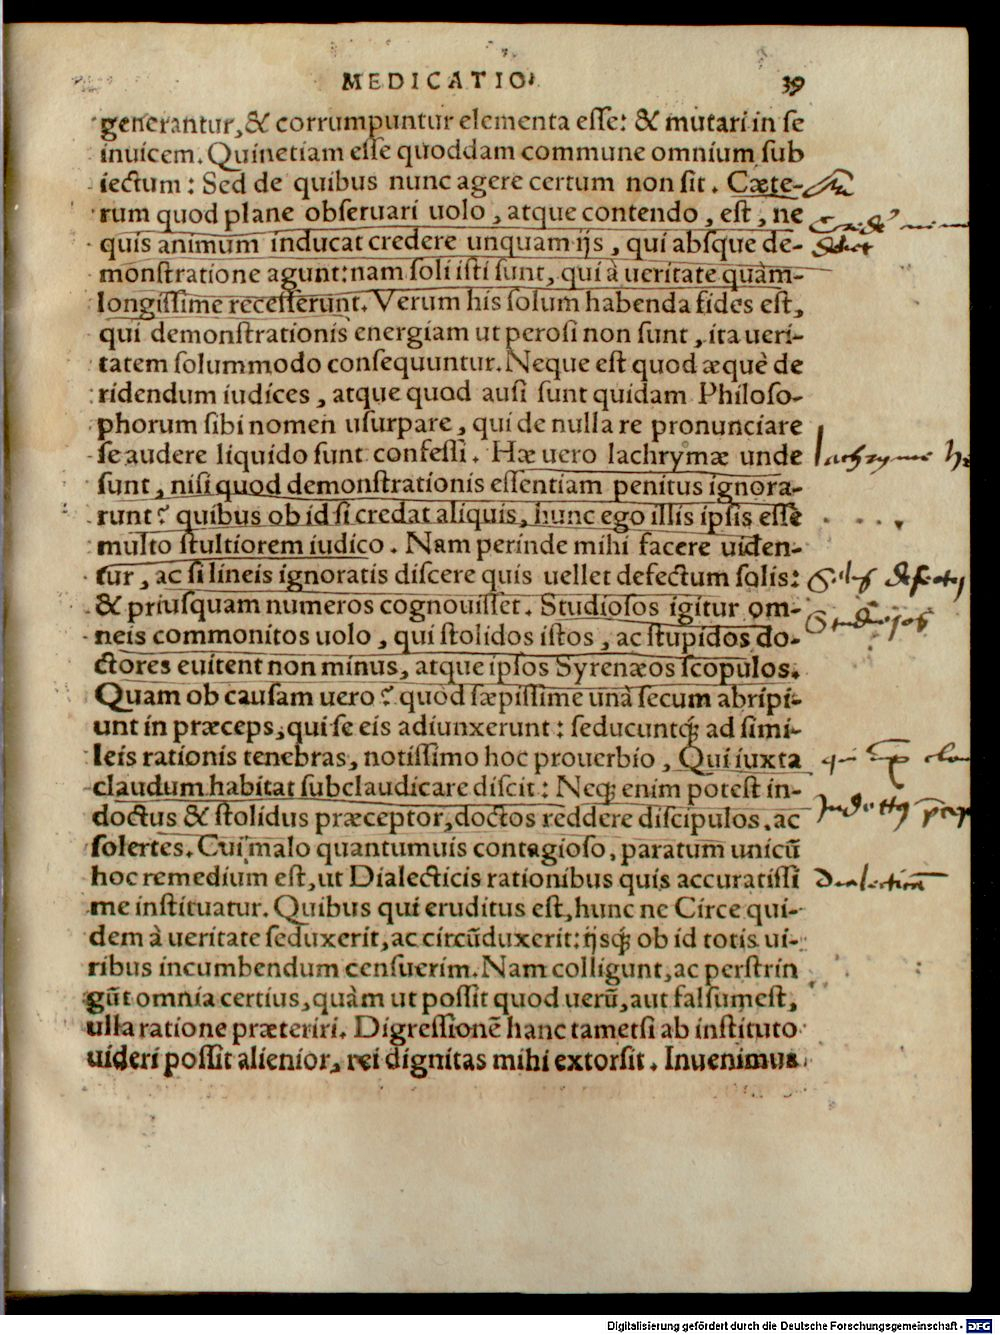 MEDICATIO. 39
generantur, & corrumpuntur elementa esse: & mutari in se
inuicem. Quinetiam esse quoddam commune omnium sub
iectum: Sed de quibus nunc agere certum non sit. Cæte-
rum quod plane obseruari uolo, atque contendo, est, ne
quis animum inducat credere unquam ijs, qui absque de-
monstratione agunt: nam soli isti sunt, qui à ueritate quàm-
longissime recesserunt. Verum his solum habenda fides est,
qui demonstrationis energiam ut perosi non sunt, ita ueri-
tatem solummodo consequuntur. Neque est quod æquè de
ridendum iudices, atque quod ausi sunt quidam Philoso-
phorum sibi nomen usurpare, qui de nulla re pronunciare
se audere liquido sunt confessi. Hæ uero lachrymæ unde lachryme
sunt, nisi quod demonstrationis essentiam penitus ignora-
runt? quibus ob id si credat aliquis, hunc ego illis ipsis esse
multo stultiorem iudico. Nam perinde mihi facere uiden-
tur, ac si lineis ignoratis discere quis uellet defectum solis: Solis defectus
& priusquam numeros cognouisset. Studiosos igitur om- Studiosos
neis commonitos uolo, qui stolidos istos, ac stupidos do-
ctores euitent non minus, atque ipsos Syrenæos scopulos.
Quam ob causam uero? quod sæpissime unà secum abripi-
unt in præceps, qui se eis adiunxerunt: seducuntq́; ad simi-
leis rationis tenebras, notissimo hoc prouerbio, Qui iuxta qui
claudum habitat subclaudicare discit: Neq; enim potest in-
doctus & stolidus præceptor, doctos reddere discipulos, ac
solertes. Cui malo quantumuis contagioso, paratum unicū
hoc remedium est, ut Dialecticis rationibus quis accuratissi
me instituatur. Quibus qui eruditus est, hunc ne Circe qui-
dem à ueritate seduxerit, ac circūduxerit: ijsq́; ob id totis ui-
ribus incumbendum censuerim. Nam colligunt, ac perstrin
gūt omnia certius, quàm ut possit quod uerū, aut falsum est,
ulla ratione præteriri. Digressionē hanc tametsi ab instituto
uideri possit alienior, rei dignitas mihi extorsit. Inuenimus
Digitalisierung gefördert durch die Deutsche Forschungsgemeinschaft - DFG